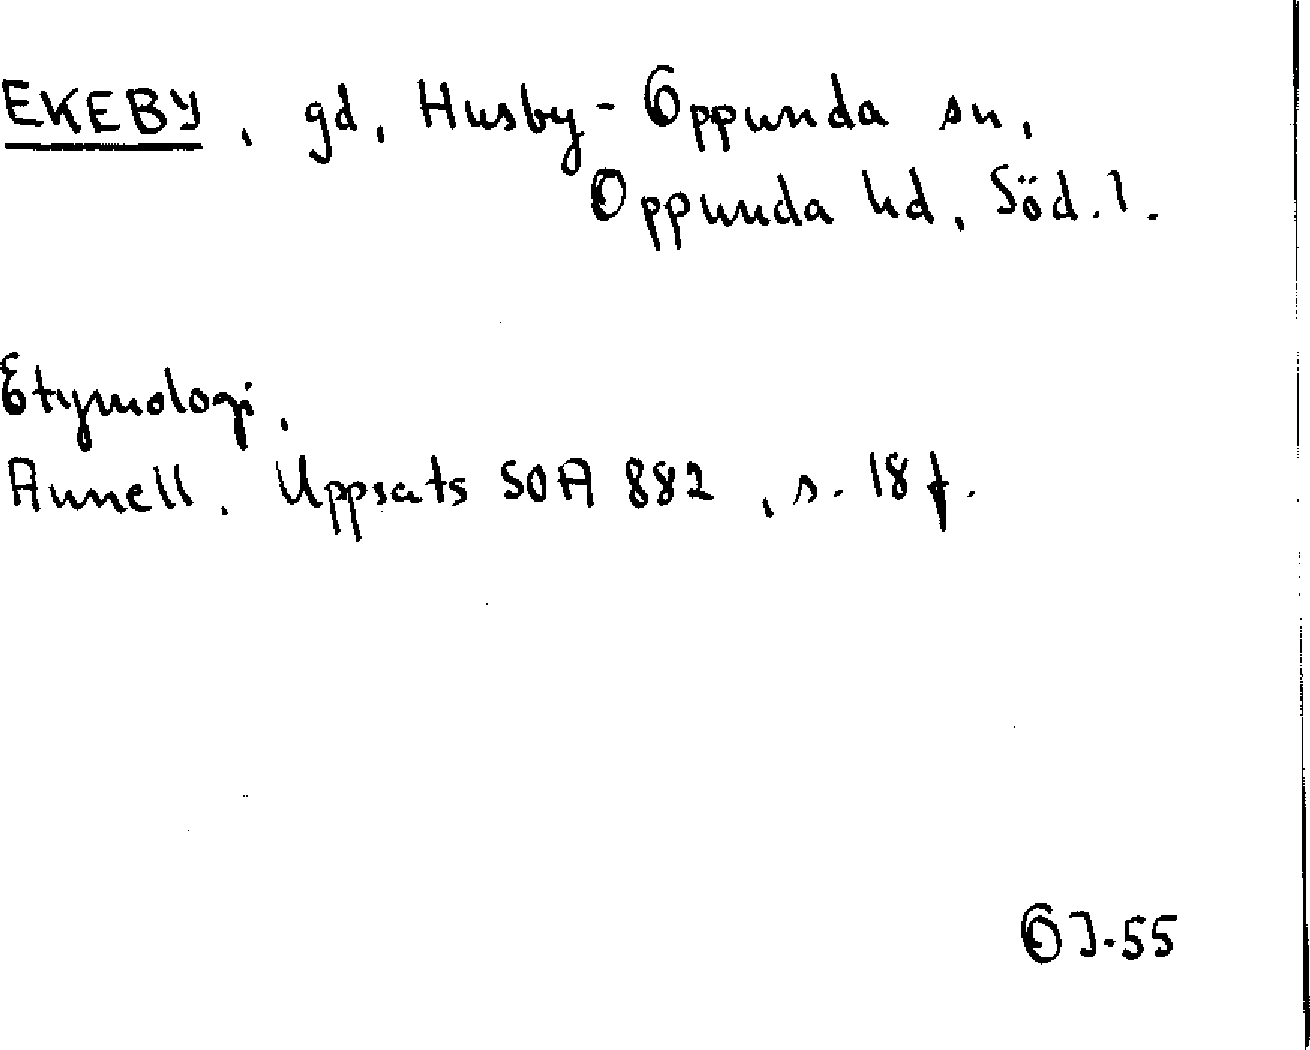 EKEBY, gd, Husby-Oppunda sn,
Oppunda hd, Söd.l.
Etymologi.
Annell. Uppsats SOA 882, s. 18 f.
OJ-55